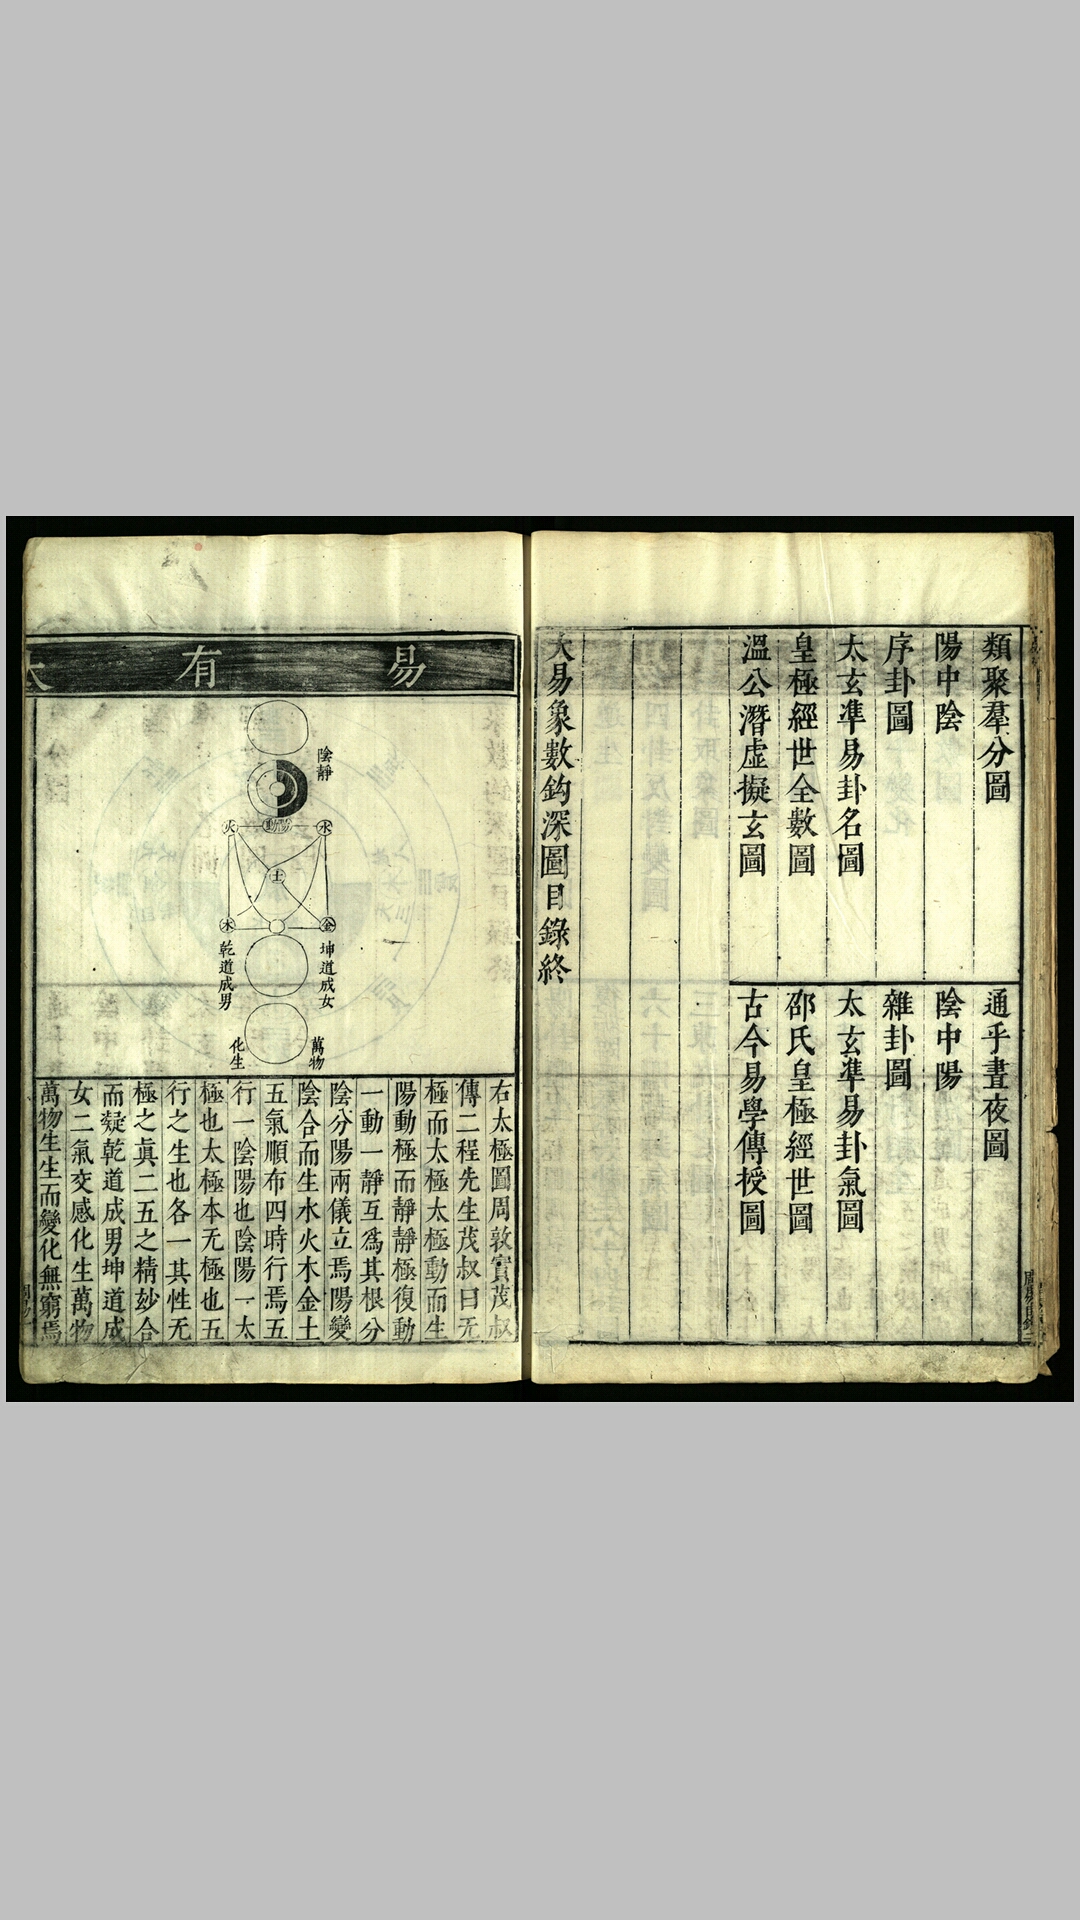 類聚羣分圖
通乎晝夜圖
陽中陰
陰中陽
序卦圖
雜卦圖
太玄準易卦名圖
太玄準易卦氣圖
皇極經世全數圖
邵氏皇極經世圖
溫公潛虛擬玄圖
古今易學傳授圖
大易象數鈎深圖目錄終
易有太
陰靜
陽動
火
水
土
木
金
坤道成女
乾道成男
萬物
化生
右太極圖周敦實茂叔
傳二程先生茂叔曰无
極而太極太極動而生
陽動極而靜靜極復動
一動一靜互爲其根分
陰分陽兩儀立焉陽變
陰合而生水火木金土
五氣順布四時行焉五
行一陰陽也陰陽一太
極也太極本无極也五
行之生也各一其性无
極之眞二五之精妙合
而凝乾道成男坤道成
女二氣交感化生萬物
萬物生生而變化無窮焉